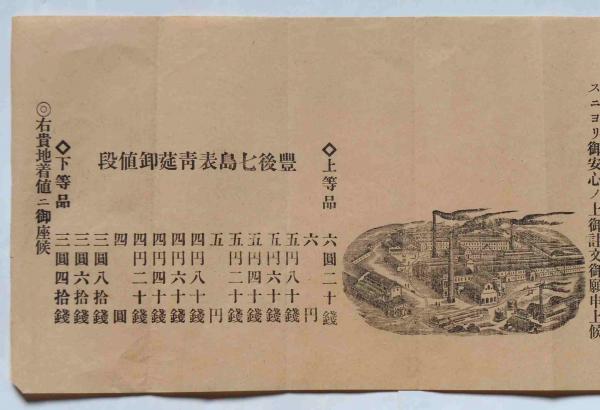 スニヨリ御安心ノ上御註文御願申上候
豐後七島表靑莚卸値段
◇上等品 六圓二十錢
六円
五円八十錢
五円六十錢
五円四十錢
五円二十錢
五円
四円八十錢
四円六十錢
四円四十錢
四円二十錢
四圓
◇下等品 三圓八拾錢
三圓六拾錢
三圓四拾錢
◎右貴地着値ニ御座候